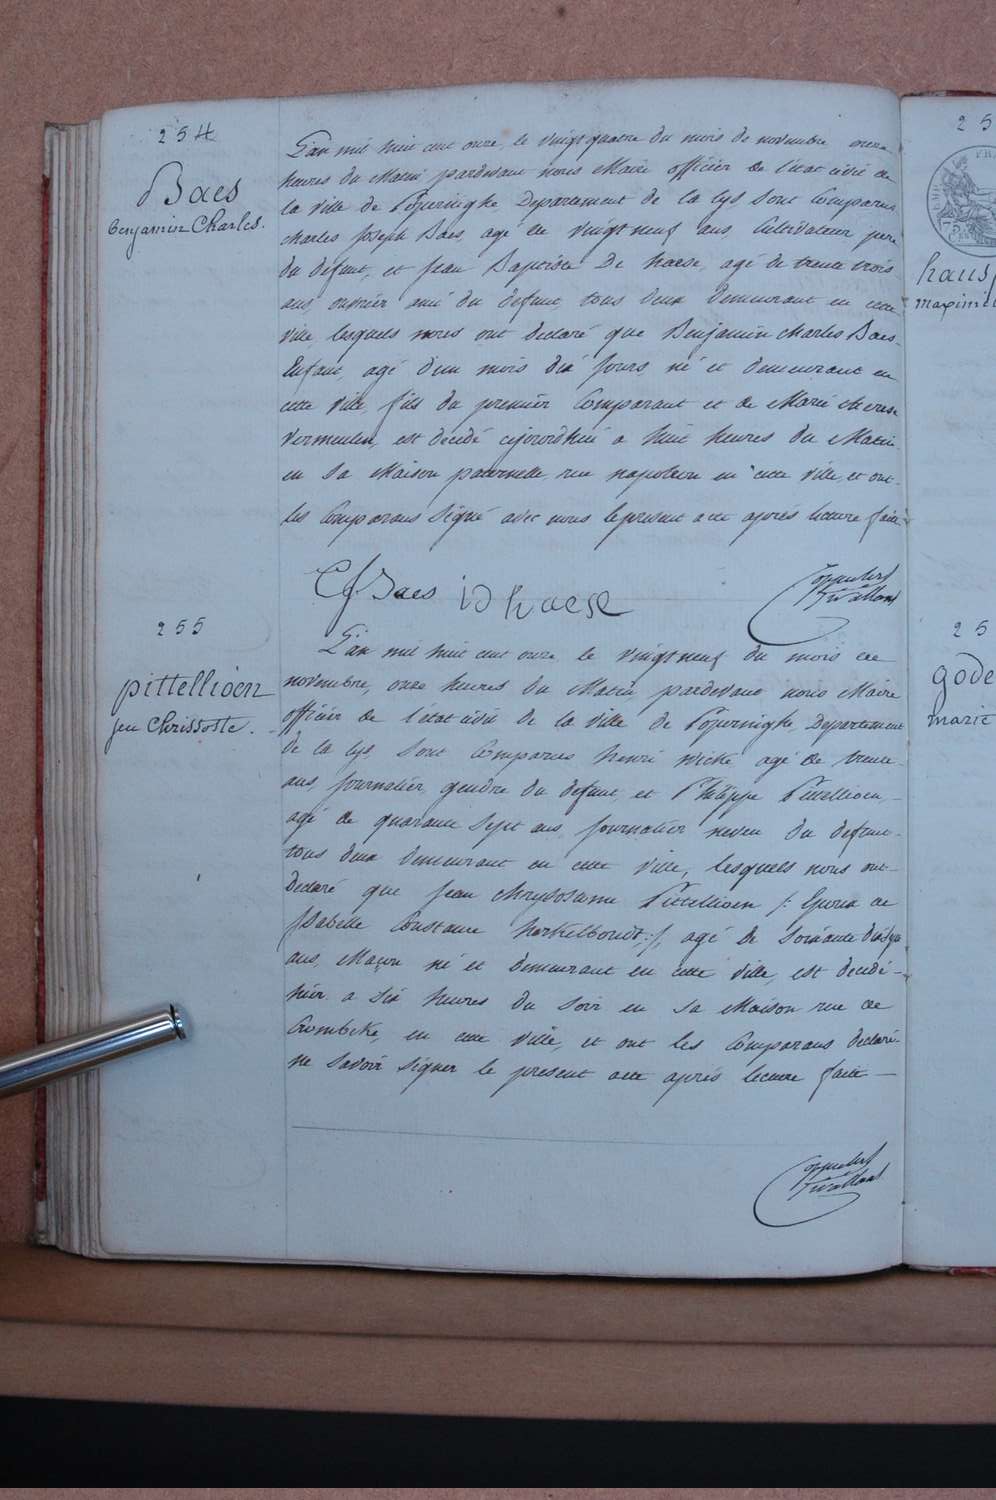 254
Baes
Benjamin Charles.
L'an mil huit cent onze, le vingt quatre du mois de novembre onze
heures du Matin pardevant nous Maire officier de l'état civil de
la ville de Poperinghe, Departement de la Lys, sont Comparus
Charles Joseph Baes, agé de vingt neuf ans Cultivateur pere
du defunt, et Jean Baptiste De haese, agé de trente trois
ans, ouvrier ami du defunt, tous deux demeurant en cette
ville, lesquels nous ont declaré que Benjamin Charles Baes
Enfant, agé d'un mois dix jours né et demeurant en
cette ville, fils du premier Comparant et de Marie therese
Vermeulen, est decedé cejourd'hui a huit heures du Matin
en sa Maison paternelle, rue napoleon en cette ville, et ont
les Comparans signé avec nous le present acte après lecture faite
CJ Baes iD haese
255
pittellioen
jen Chrissoste.
L'an mil huit cent onze, le vingt neuf du mois de
novembre, onze heures du Matin, pardevant nous Maire
officier de l'état civil de la ville de Poperinghe, Departement
de la Lys, sont Comparus henri wicke agé de trente
ans, journalier, gendre du defunt, et Philippe Pittellioen,
agé de quarante sept ans, journalier neveu du defunt
tous deux demeurant en cette ville, lesquels nous ont
declaré que Jean Chrysostome Pittellioen /: Epoux de
Isabelle Constance herkelboudt :/, agé de soixante
ans, Maçon né et demeurant en cette ville, est decedé
hier a six heures du soir en sa Maison rue de
Crombeke, en cette ville, et ont les Comparans declaré
ne savoir signer le present acte après lecture faite
25
haus
maximil
25
gode
marie